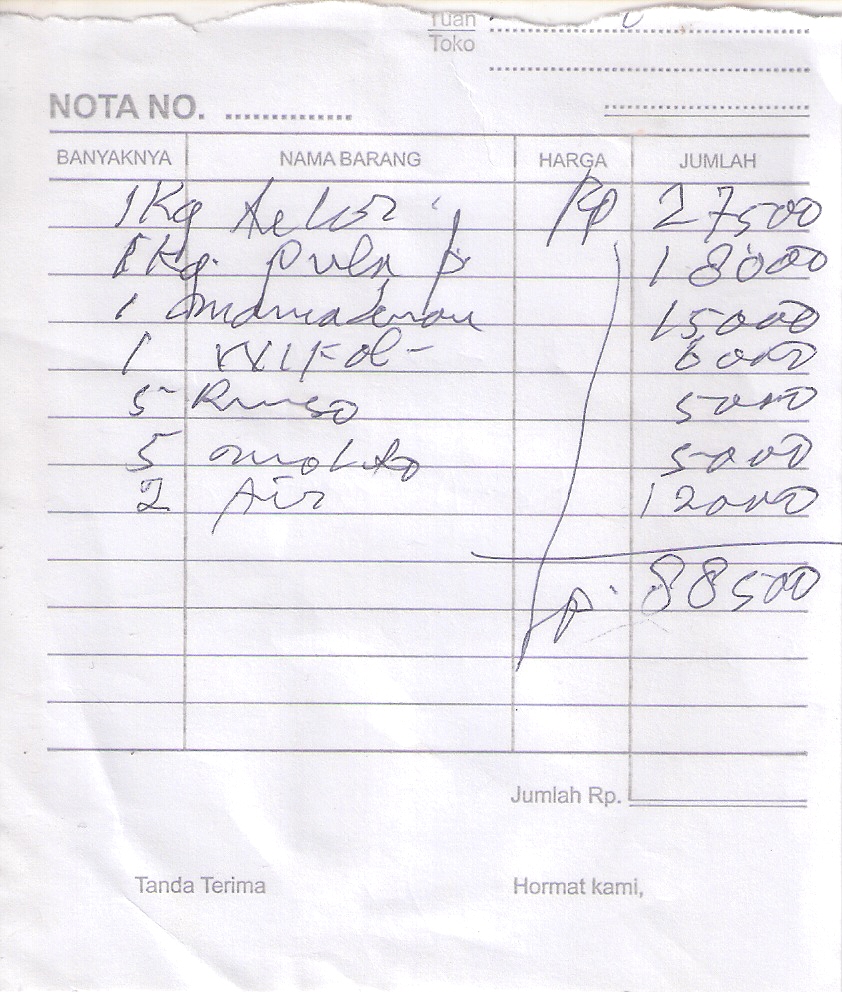 Tuan
Toko
NOTA NO. ..............
BANYAKNYA NAMA BARANG HARGA JUMLAH
1 Kg Telor Rp 27500
1 Kg. Gula p 18000
1 15000
1 Wipol 6000
5 Rinso 5000
5 molto 5000
2 Air 12000
Rp. 88500
Jumlah Rp.
Tanda Terima Hormat kami,